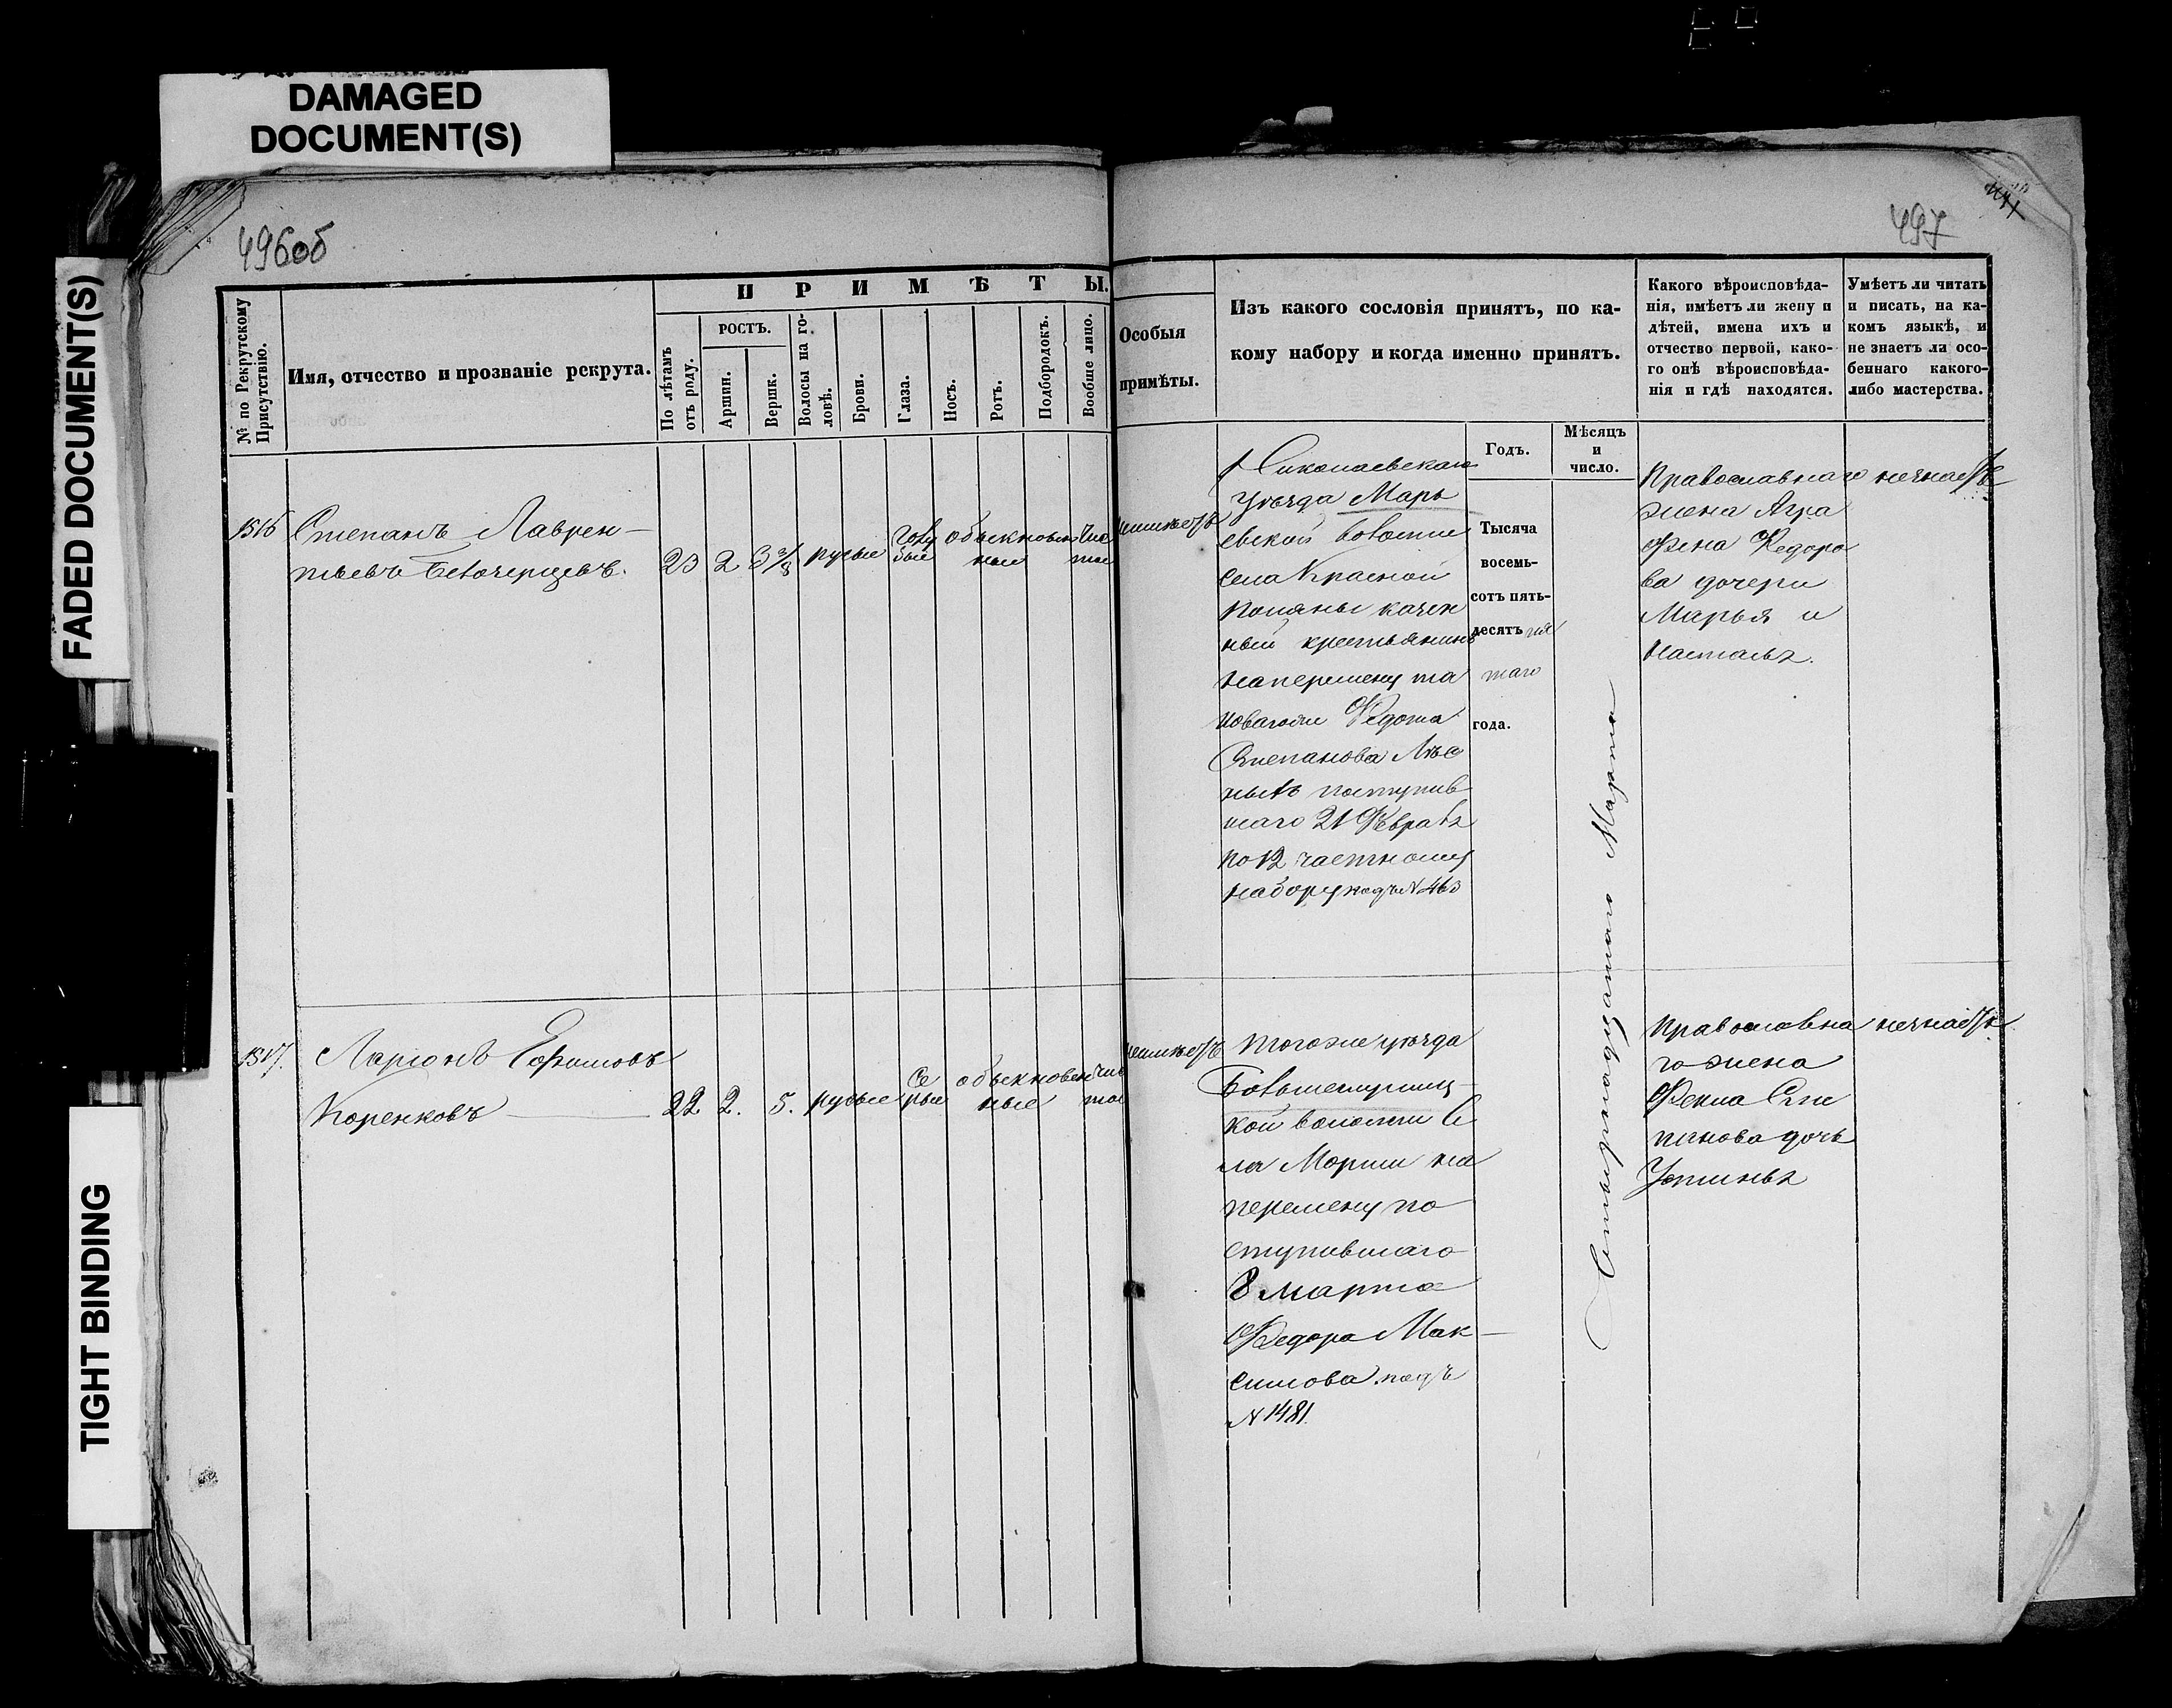 DAMAGED
DOCUMENT(S)
FADED DOCUMENT(S)
TIGHT BINDING
496об
497
№ по Рекрутскому
Присутствію.
Имя, отчество и прозваніе рекрута.
П Р И М Ѣ Т Ы.
По лѣтамъ
отъ роду.
РОСТЪ.
Аршин.
Вершк.
Волосы на го-
ловѣ.
Брови.
Глаза.
Носъ.
Ротъ.
Подбородокъ.
Вообще лицо.
Особыя
примѣты.
Изъ какого сословія принятъ, по ка-
кому набору и когда именно принятъ.
Годъ.
Мѣсяцъ
и
число.
Какого вѣроисповѣда-
нія, имѣетъ ли жену и
дѣтей, имена ихъ и
отчество первой, како-
го онѣ вѣроисповѣда-
нія и гдѣ находятся.
Умѣетъ ли читать
и писать, на ка-
комъ языкѣ, и
не знаетъ ли осо-
беннаго какого-
либо мастерства.
1516
Степанъ Лаврен-
тьевъ Белочерцевъ.
23 2 3 3/8 русые
голу
бые
обыкновен
ные
чис
тое
неимѣетъ
Николаевскаго
уѣзда Марь
евской волости
села Красной
Поляны казен
ный крестьянинъ
наперемену та
коваго же Федота
Степанова
поступив
шаго 21 Февраля
по 12 частному
набору подъ N 463
Тысяча
восемь-
сотъ пять-
десятъ пя
таго
года.
Четырнадцатаго Марта
Православнаго
жена Агра
фена Федоро
ва дочери
Марья и
Настасья.
незнаетъ
1517.
Ларіонъ Ефимовъ
Коренковъ
22 2. 5. русые
се
рые
обыкновен
ные
чис
тое
неимѣетъ
Тогоже уѣзда
кой волости Се
ла Морши на
перемену по
ступившаго
8 Марта
Федора Мак-
симова подъ
N 1481.
Православна
го жена
Фекла Сте
панова дочь
Устинья
незнаетъ